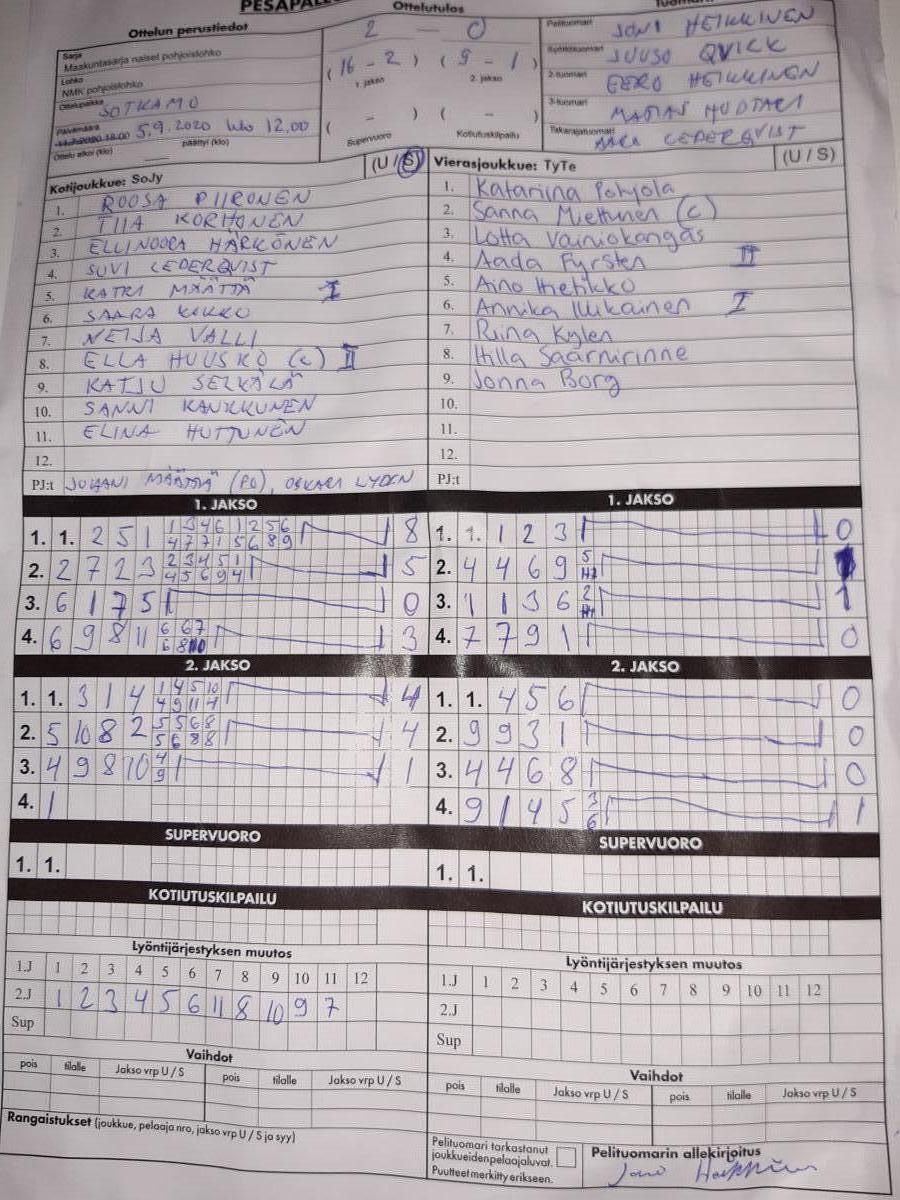 PESÄPALL
Ottelun perustiedot
Ottelutulos
Sarja
Maakuntasarja naiset pohjoislohko
Lohko
NMK pohjoislohko
Ottelupaikka SOTKAMO
Päivämäärä 5.9.2020 klo 12.00
Ottelu alkoi (klo) päättyi (klo)
2 – 0
(16 – 2) (9 – 1)
1. jakso 2. jakso
( – ) ( – )
Supervuoro Kotiutuskilpailu
Pelituomari JONI HEIKKINEN
Syöttötuomari JUUSO QVICK
2-tuomari EERO HEIKKINEN
3-tuomari MATIAS HUOTARI
Takarajatuomari CEDERQVIST
Kotijoukkue: SoJy (U / S)
1. ROOSA PIIRONEN
2. TIIA KORHONEN
3. ELLINOORA HÄRKÖNEN
4. SUVI CEDERQVIST
5. KATRI MÄÄTTÄ I
6. SAARA KIKKO
7. NEIJA VALLI
8. ELLA HUUSKO (c) II
9. KATJU SELKÄLÄ
10. SANNI KAUKKUNEN
11. ELINA HUTTUNEN
12.
PJ:t JUHANI MÄÄTTÄ (PG), OSKARI LYDEN
Vierasjoukkue: TyTe (U / S)
1. Katariina Pohjola
2. Sanna Miettunen (c)
3. Lotta Vainiokangas
4. Aada Fyrsten II
5. Aino Hietikko
6. Annika Mikainen I
7. Riina Kylen
8. Hilla Saarnirinne
9. Jonna Borg
10.
11.
12.
PJ:t
1. JAKSO
1. 1. 2 5 1 1 3 4 6 1 2 5 6 8
4 7 7 1 5 6 8 9
2. 2 7 2 3 2 3 4 5 1 5
4 5 6 9 4
3. 6 1 7 5 0
4. 6 9 8 11 6 6 7 3
6 8 10
1. JAKSO
1. 1. 1 2 3 0
2. 4 4 6 9 5 1
H2
3. 1 1 3 6 2 1
H1
4. 7 7 9 1 0
2. JAKSO
1. 1. 3 1 4 1 4 5 10 4
4 9 11 4
2. 5 10 8 2 5 5 6 8 4
5 6 8 8
3. 4 9 8 10 4 1
9
4. 1
2. JAKSO
1. 1. 4 5 6 0
2. 9 9 3 1 0
3. 4 4 6 8 0
4. 9 1 4 5 3 1
6
SUPERVUORO
1. 1.
SUPERVUORO
1. 1.
KOTIUTUSKILPAILU
KOTIUTUSKILPAILU
Lyöntijärjestyksen muutos
1.J 1 2 3 4 5 6 7 8 9 10 11 12
2.J 1 2 3 4 5 6 11 8 10 9 7
Sup
Lyöntijärjestyksen muutos
1.J 1 2 3 4 5 6 7 8 9 10 11 12
2.J
Sup
Vaihdot
pois tilalle Jakso vrp U / S pois tilalle Jakso vrp U / S
Vaihdot
pois tilalle Jakso vrp U / S pois tilalle Jakso vrp U / S
Rangaistukset (joukkue, pelaaja nro, jakso vrp U / S ja syy)
Pelituomari tarkastanut
joukkueidenpelaajaluvat.
Puutteet merkitty erikseen.
Pelituomarin allekirjoitus